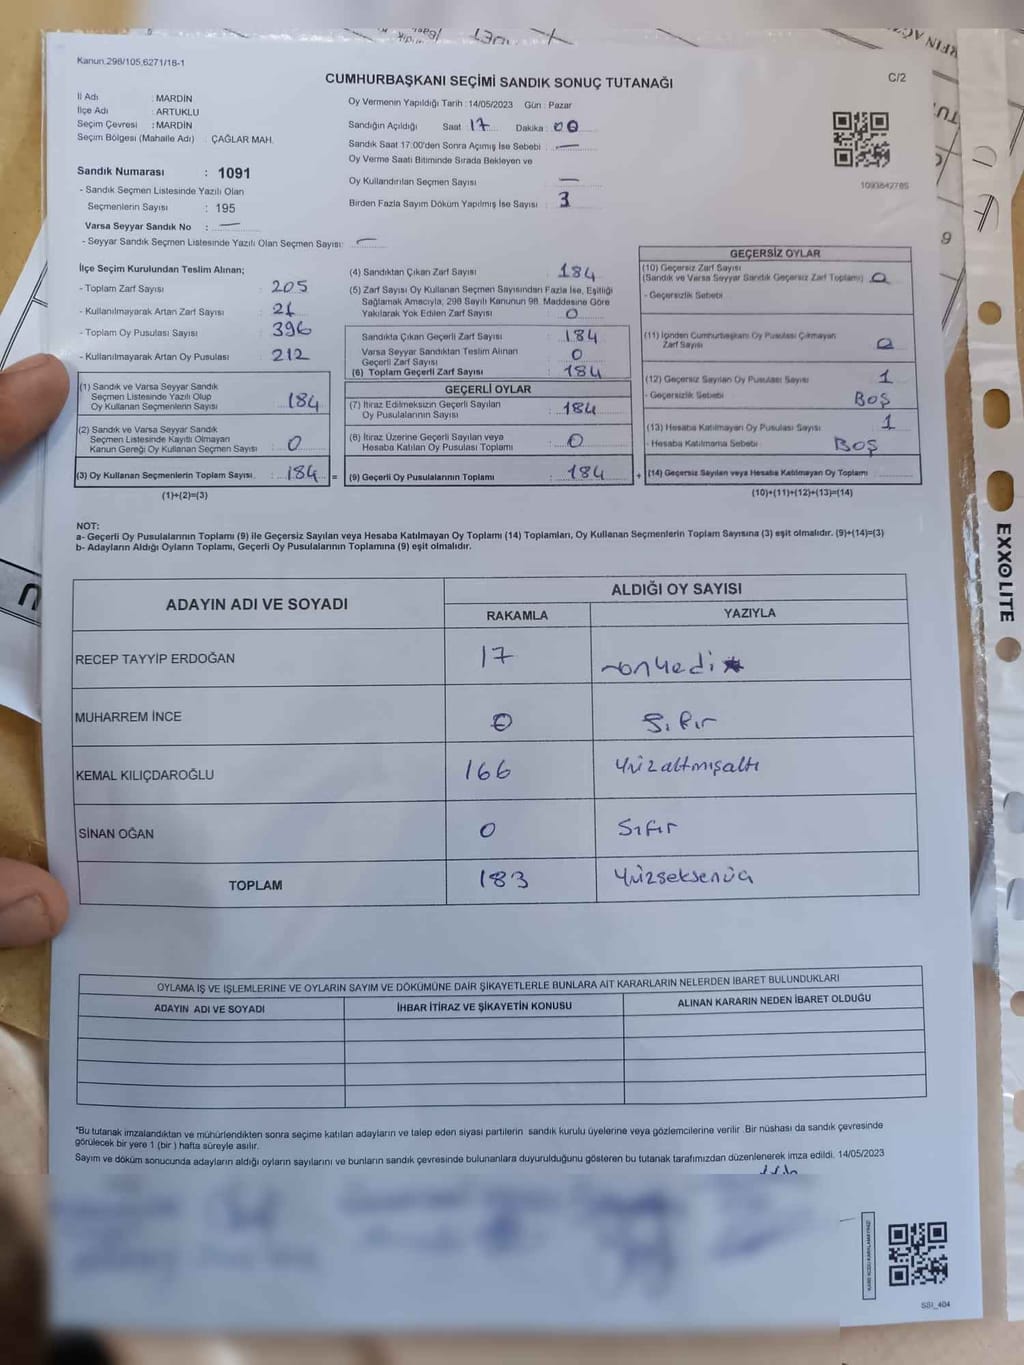 Kanun.298/105,6271/18-1
CUMHURBAŞKANI SEÇİMİ SANDIK SONUÇ TUTANAĞI
C/2
İl Adı : MARDİN
İlçe Adı : ARTUKLU
Seçim Çevresi : MARDİN
Seçim Bölgesi (Mahalle Adı) : ÇAĞLAR MAH.
Oy Vermenin Yapıldığı Tarih : 14/05/2023 Gün : Pazar
Sandığın Açıldığı Saat : 17 Dakika : 00
Sandık Saat 17:00'den Sonra Açımış İse Sebebi : —
Oy Verme Saati Bitiminde Sırada Bekleyen ve
Oy Kullandırılan Seçmen Sayısı —
Birden Fazla Sayım Döküm Yapılmış İse Sayısı : 3
1093842785
Sandık Numarası : 1091
- Sandık Seçmen Listesinde Yazılı Olan
Seçmenlerin Sayısı : 195
Varsa Seyyar Sandık No : —
- Seyyar Sandık Seçmen Listesinde Yazılı Olan Seçmen Sayısı: —
İlçe Seçim Kurulundan Teslim Alınan;
- Toplam Zarf Sayısı : 205
- Kullanılmayarak Artan Zarf Sayısı : 21
- Toplam Oy Pusulası Sayısı : 396
- Kullanılmayarak Artan Oy Pusulası : 212
(1) Sandık ve Varsa Seyyar Sandık
Seçmen Listesinde Yazılı Olup
Oy Kullanan Seçmenlerin Sayısı : 184
(2) Sandık ve Varsa Seyyar Sandık
Seçmen Listesinde Kayıtlı Olmayan
Kanun Gereği Oy Kullanan Seçmen Sayısı : 0
(3) Oy Kullanan Seçmenlerin Toplam Sayısı. : 184 =
(1)+(2)=(3)
(4) Sandıktan Çıkan Zarf Sayısı : 184
(5) Zarf Sayısı Oy Kullanan Seçmen Sayısından Fazla İse, Eşitliği
Sağlamak Amacıyla, 298 Sayılı Kanunun 98. Maddesine Göre
Yakılarak Yok Edilen Zarf Sayısı : 0
Sandıkta Çıkan Geçerli Zarf Sayısı : 184
Varsa Seyyar Sandıktan Teslim Alınan
Geçerli Zarf Sayısı : 0
(6) Toplam Geçerli Zarf Sayısı : 184
GEÇERLİ OYLAR
(7) İtiraz Edilmeksizin Geçerli Sayılan
Oy Pusulalarının Sayısı : 184
(8) İtiraz Üzerine Geçerli Sayılan veya
Hesaba Katılan Oy Pusulası Toplamı : 0
(9) Geçerli Oy Pusulalarının Toplamı : 184 +
GEÇERSİZ OYLAR
(10) Geçersiz Zarf Sayısı
(Sandık ve Varsa Seyyar Sandık Geçersiz Zarf Toplamı) : 0
- Geçersizlik Sebebi
(11) İçinden Cumhurbaşkanı Oy Pusulası Çıkmayan
Zarf Sayısı : 0
(12) Geçersiz Sayılan Oy Pusulası Sayısı : 1
- Geçersizlik Sebebi : BOŞ
(13) Hesaba Katılmayan Oy Pusulası Sayısı : 1
- Hesaba Katılmama Sebebi : BOŞ
(14) Geçersiz Sayılan veya Hesaba Katılmayan Oy Toplamı
(10)+(11)+(12)+(13)=(14)
NOT:
a- Geçerli Oy Pusulalarının Toplamı (9) ile Geçersiz Sayılan veya Hesaba Katılmayan Oy Toplamı (14) Toplamları, Oy Kullanan Seçmenlerin Toplam Sayısına (3) eşit olmalıdır. (9)+(14)=(3)
b- Adayların Aldığı Oyların Toplamı, Geçerli Oy Pusulalarının Toplamına (9) eşit olmalıdır.
ADAYIN ADI VE SOYADI
ALDIĞI OY SAYISI
RAKAMLA YAZIYLA
RECEP TAYYİP ERDOĞAN 17 onyedi
MUHARREM İNCE 0 Sıfır
KEMAL KILIÇDAROĞLU 166 Yüzaltmışaltı
SİNAN OĞAN 0 Sıfır
TOPLAM 183 Yüzseksenüç
OYLAMA İŞ VE İŞLEMLERİNE VE OYLARIN SAYIM VE DÖKÜMÜNE DAİR ŞİKAYETLERLE BUNLARA AİT KARARLARIN NELERDEN İBARET BULUNDUKLARI
ADAYIN ADI VE SOYADI İHBAR İTİRAZ VE ŞİKAYETİN KONUSU ALINAN KARARIN NEDEN İBARET OLDUĞU
*Bu tutanak imzalandıktan ve mühürlendikten sonra seçime katılan adayların ve talep eden siyasi partilerin sandık kurulu üyelerine veya gözlemcilerine verilir .Bir nüshası da sandık çevresinde
görülecek bir yere 1 (bir ) hafta süreyle asılır.
Sayım ve döküm sonucunda adayların aldığı oyların sayılarını ve bunların sandık çevresinde bulunanlara duyurulduğunu gösteren bu tutanak tarafımızdan düzenlenerek imza edildi. 14/05/2023
SSI_404
EXXO LITE